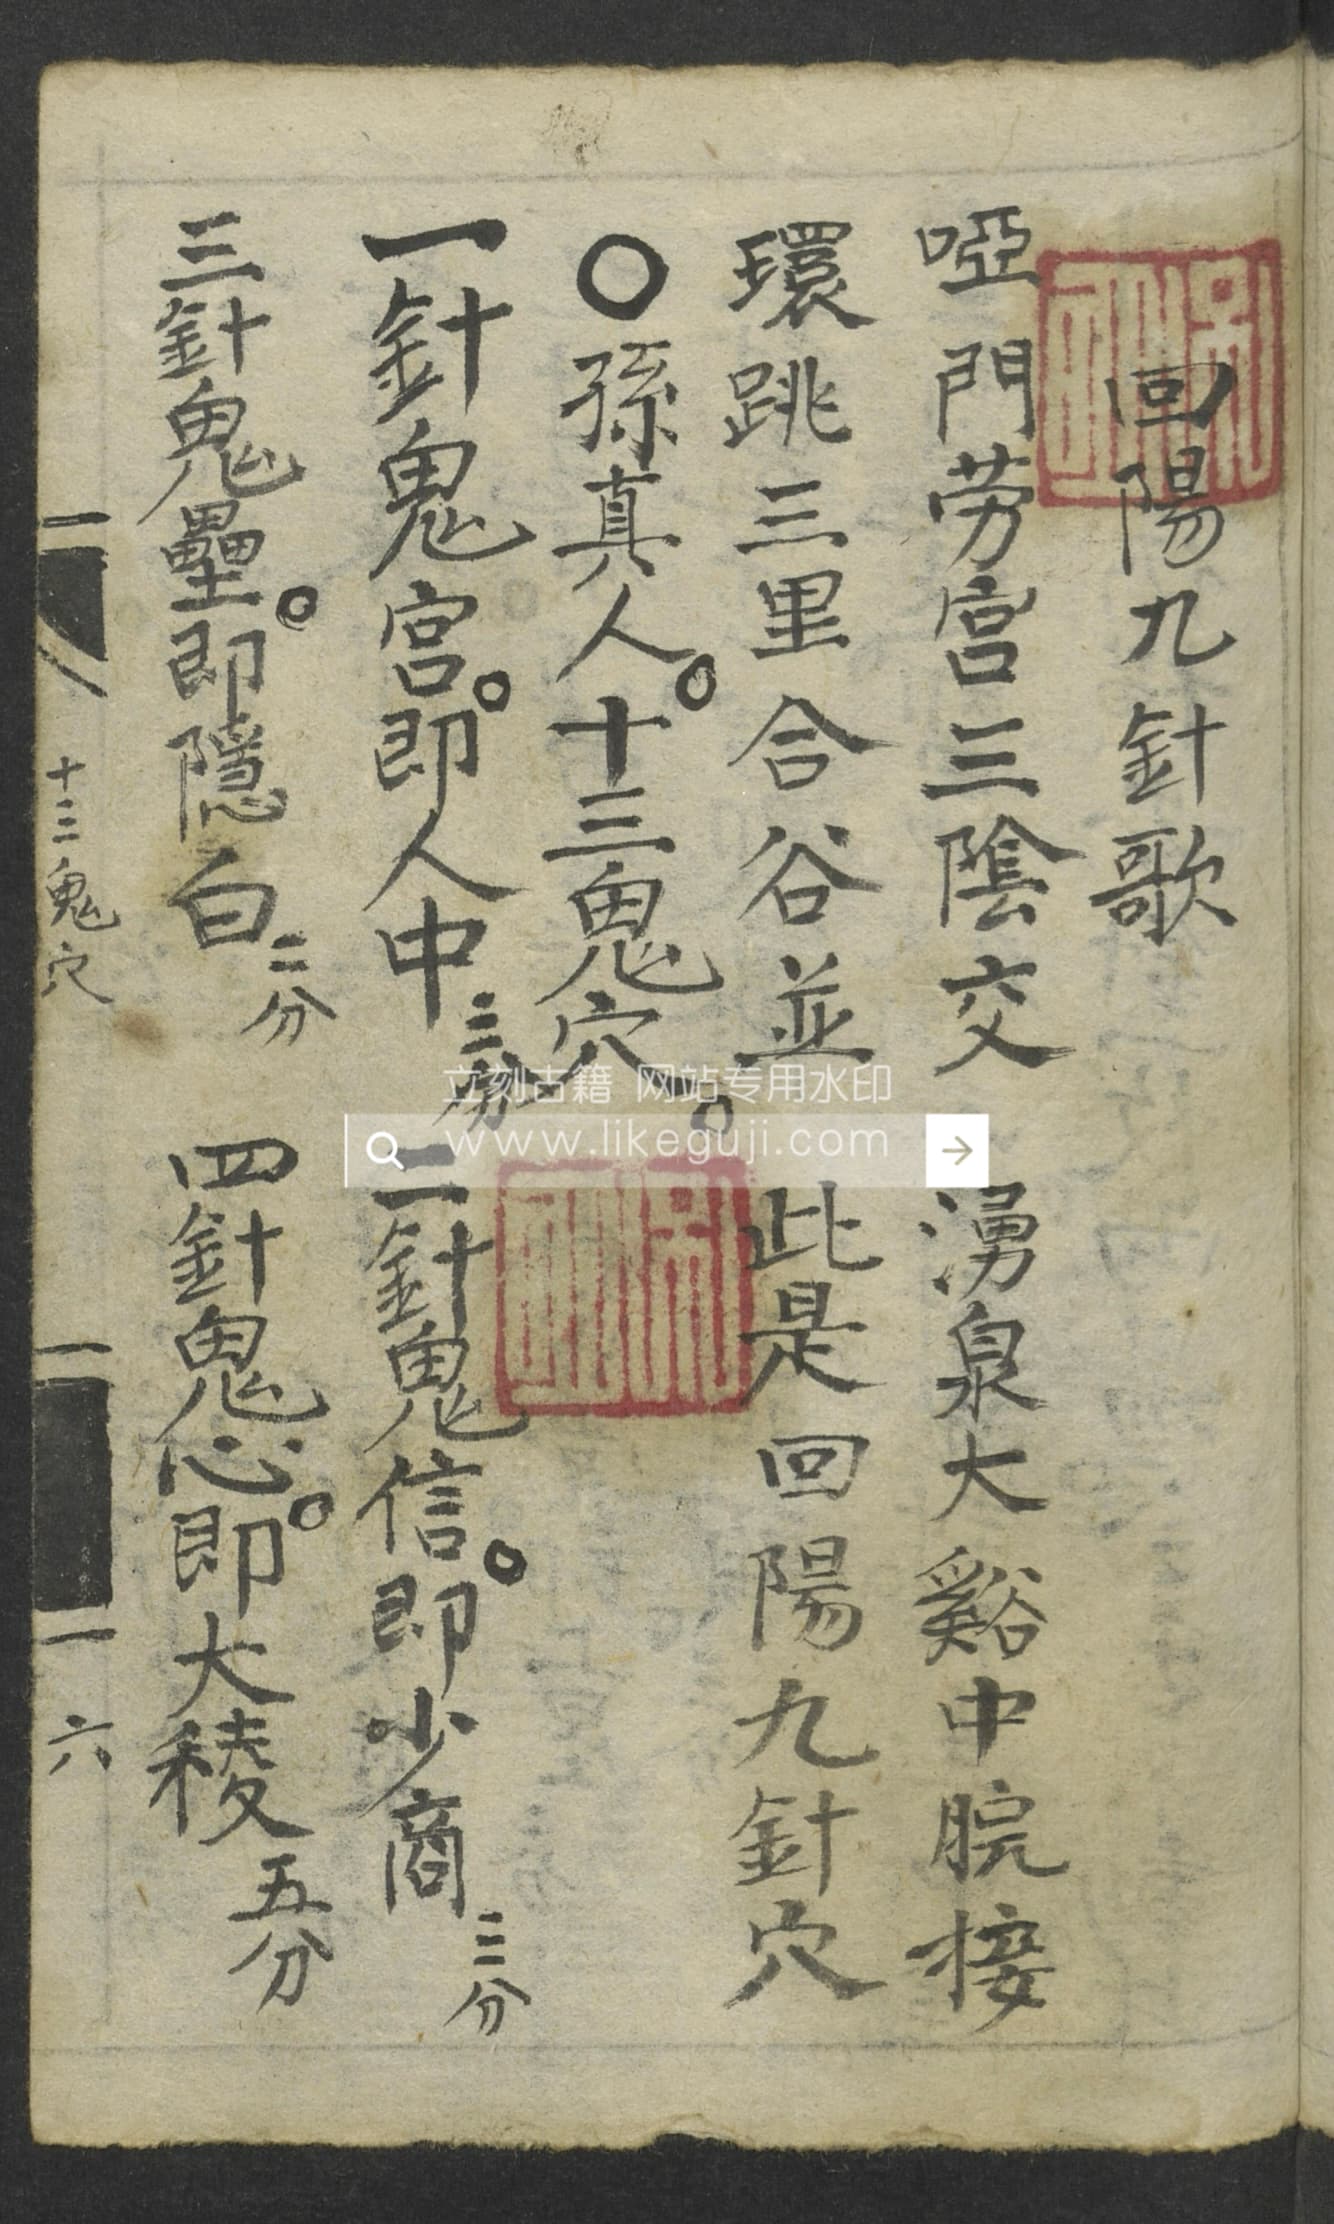 回陽九針歌
啞門劳宫三陰交　湧泉大谿中脘接
環跳三里合谷並。此是回陽九針穴
〇孫真人。十三鬼穴
一針鬼宫。即人中三分　二針鬼信。即少商三分
三針鬼壘。即隱白二分　四針鬼心。即大稜五分
十三鬼穴
六
立刻古籍 网站专用水印
www.likeguji.com